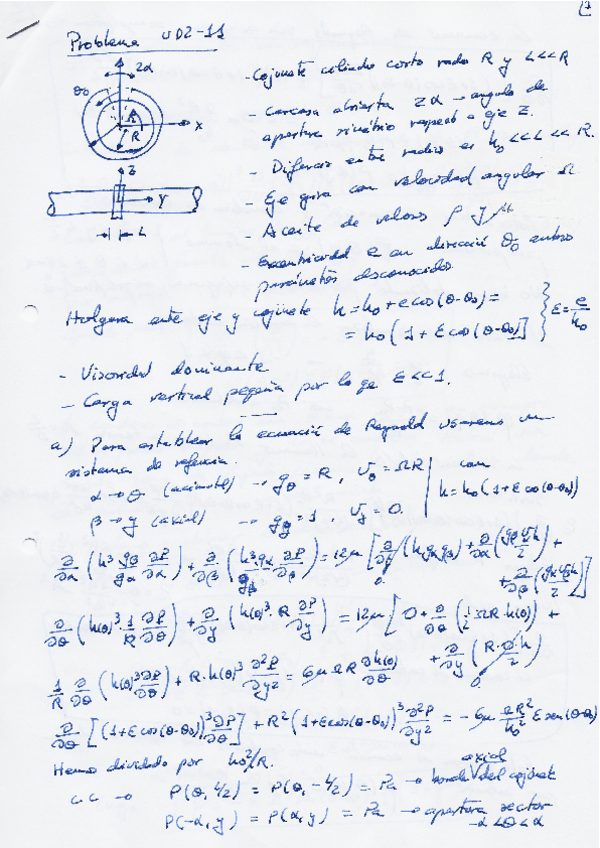 1
Problema UD2-11
2α
θ0
A
R
X
Z
Y
L
- Cojinete cilindro corto radio R y L<<R
- Carcasa abierta 2α → angulo de
apertura simétrico respecto a eje Z.
- Diferencia entre radios es h0 <<L << R.
- Eje gira con velocidad angular Ω
- Aceite de valores ρ y μ
- Excentricidad e en dirección θ0 ambos
parámetros desconocidos.
Holgura entre eje y cojinete h = h0 + e cos(θ-θ0) =
= h0 [1 + ε cos(θ-θ0)] } ε = e/h0
- Viscosidad dominante
- Carga vertical pequeña por lo que ε<<1.
a) Para establecer la ecuación de Reynolds usaremos un
sistema de referencia.
α → θ (acimutal) → gθ = R, Vθ = ΩR | con
β → y (axial) → gy = 1, Vy = 0. | h = h0 (1+ε cos(θ-θ0))
∂/∂α (h³ gβ/gα ∂P/∂α) + ∂/∂β (h³ gα/gβ ∂P/∂β) = 12μ [∂/∂t (h gα gβ) + ∂/∂α (gβ Vα h/2) +
0
+ ∂/∂β (gα Vβ h/2)]
∂/∂θ (h(θ)³ · 1/R ∂P/∂θ) + ∂/∂y (h(θ)³ · R ∂P/∂y) = 12μ [0 + ∂/∂θ (1/2 ΩR · h(θ)) +
+ ∂/∂y (R · 0 · h/2)
0
1/R ∂/∂θ (h(θ)³ ∂P/∂θ) + R · h(θ)³ ∂²P/∂y² = 6μ ΩR ∂h(θ)/∂θ
∂/∂θ [(1+ε cos(θ-θ0))³ ∂P/∂θ] + R² (1+ε cos(θ-θ0))³ ∂²P/∂y² = - 6μ ΩR²/h0² ε sen(θ-θ0)
Hemos dividido por h0³/R.
c.c → P(θ, L/2) = P(θ, -L/2) = Pa → borde axial del cojinete
P(-α, y) = P(α, y) = Pa → apertura sector
-α<θ<α